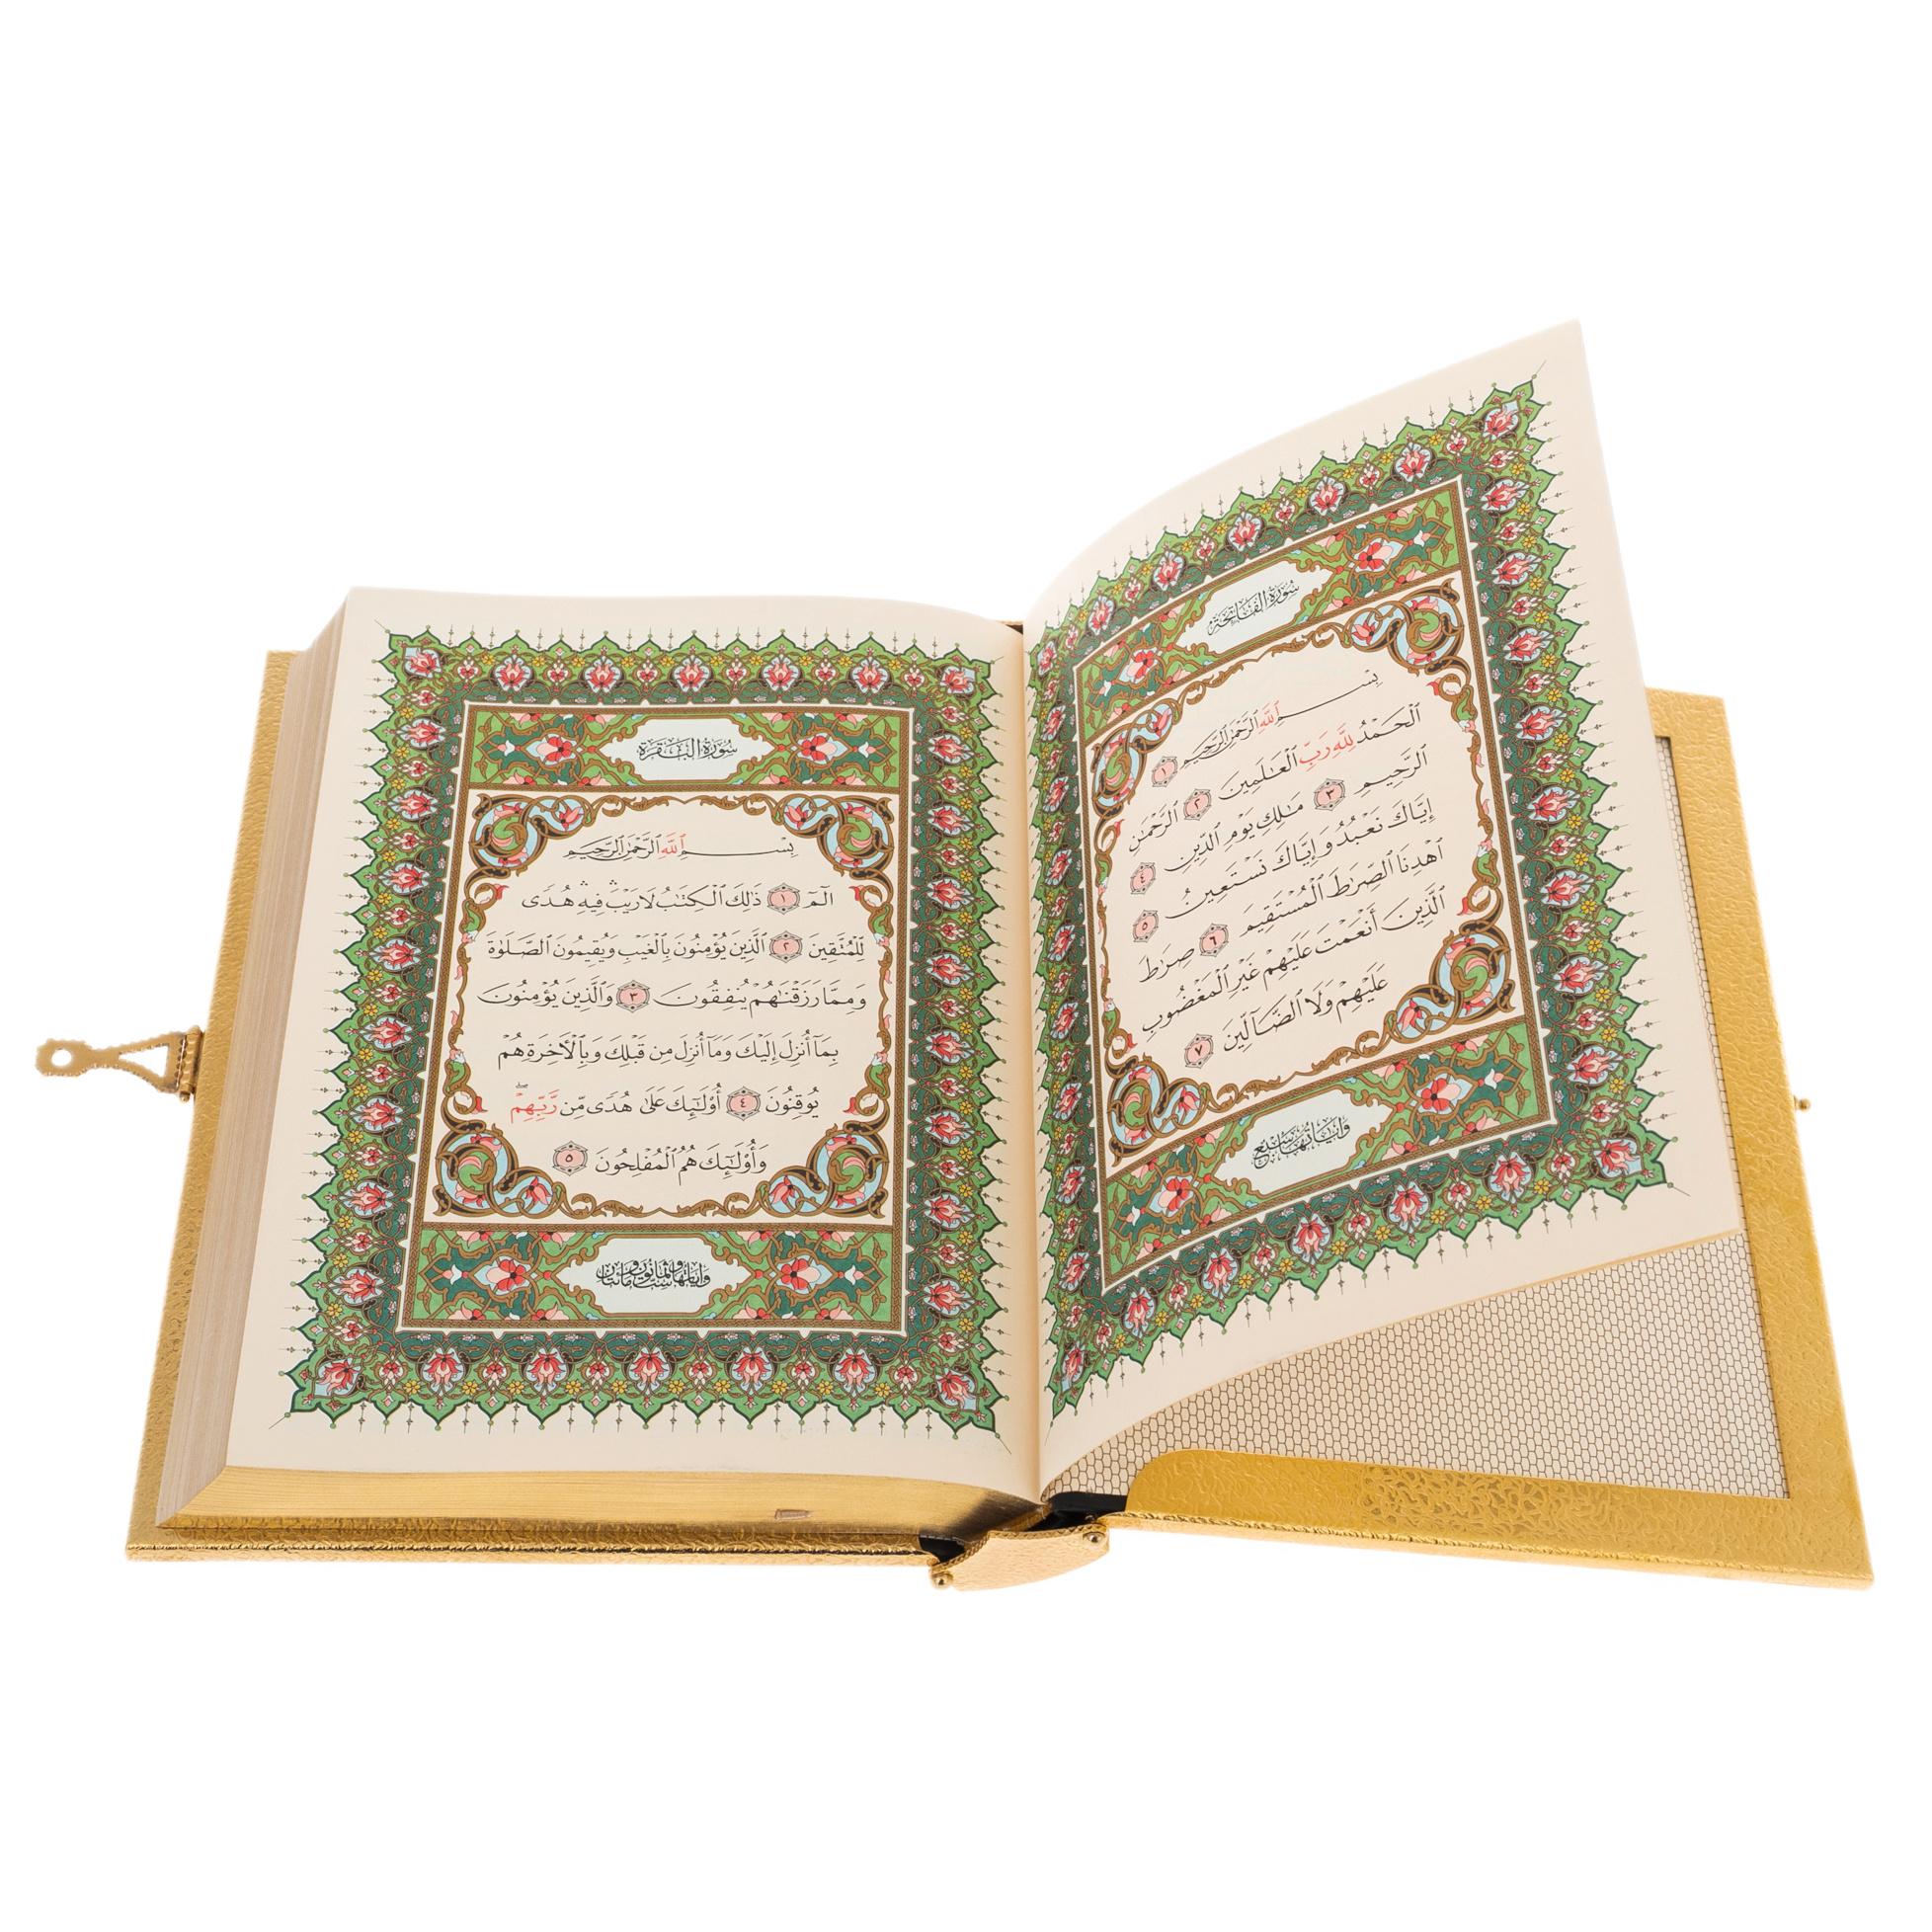 سُورَةُ الفَاتِحَةِ
بِسْمِ ٱللَّهِ ٱلرَّحْمَٰنِ ٱلرَّحِيمِ ١
ٱلْحَمْدُ لِلَّهِ رَبِّ ٱلْعَٰلَمِينَ ٢ ٱلرَّحْمَٰنِ
ٱلرَّحِيمِ ٣ مَٰلِكِ يَوْمِ ٱلدِّينِ ٤
إِيَّاكَ نَعْبُدُ وَإِيَّاكَ نَسْتَعِينُ ٥
ٱهْدِنَا ٱلصِّرَٰطَ ٱلْمُسْتَقِيمَ ٦ صِرَٰطَ
ٱلَّذِينَ أَنْعَمْتَ عَلَيْهِمْ غَيْرِ ٱلْمَغْضُوبِ
عَلَيْهِمْ وَلَا ٱلضَّآلِّينَ ٧
وَآيَاتُهَا سَبْعٌ
سُورَةُ البَقَرَةِ
بِسْمِ ٱللَّهِ ٱلرَّحْمَٰنِ ٱلرَّحِيمِ
الٓمٓ ١ ذَٰلِكَ ٱلْكِتَٰبُ لَا رَيْبَۛ فِيهِۛ هُدًى
لِّلْمُتَّقِينَ ٢ ٱلَّذِينَ يُؤْمِنُونَ بِٱلْغَيْبِ وَيُقِيمُونَ ٱلصَّلَوٰةَ
وَمِمَّا رَزَقْنَٰهُمْ يُنفِقُونَ ٣ وَٱلَّذِينَ يُؤْمِنُونَ
بِمَآ أُنزِلَ إِلَيْكَ وَمَآ أُنزِلَ مِن قَبْلِكَ وَبِٱلْأَخِرَةِ هُمْ
يُوقِنُونَ ٤ أُو۟لَٰٓئِكَ عَلَىٰ هُدًى مِّن رَّبِّهِمْۖ
وَأُو۟لَٰٓئِكَ هُمُ ٱلْمُفْلِحُونَ ٥
وَآيَاتُهَا سِتٌّ وَثَمَانُونَ وَمِائَتَانِ